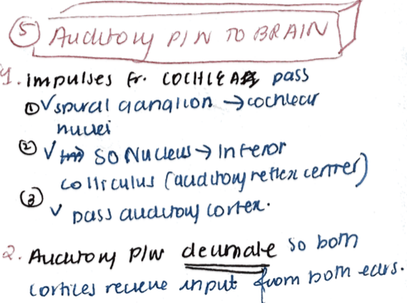 ⑤ AUDITORY P/W TO BRAIN
1. impulses fr. COCHLEA pass
① √ spiral ganglion → cochlear
nuclei
② √ SO Nucleus → Inferor
colliculus (auditory reflex center)
③ √ pass auditory cortex.
2. Auditory P/W decussate so both
cortices recieve input from both ears.